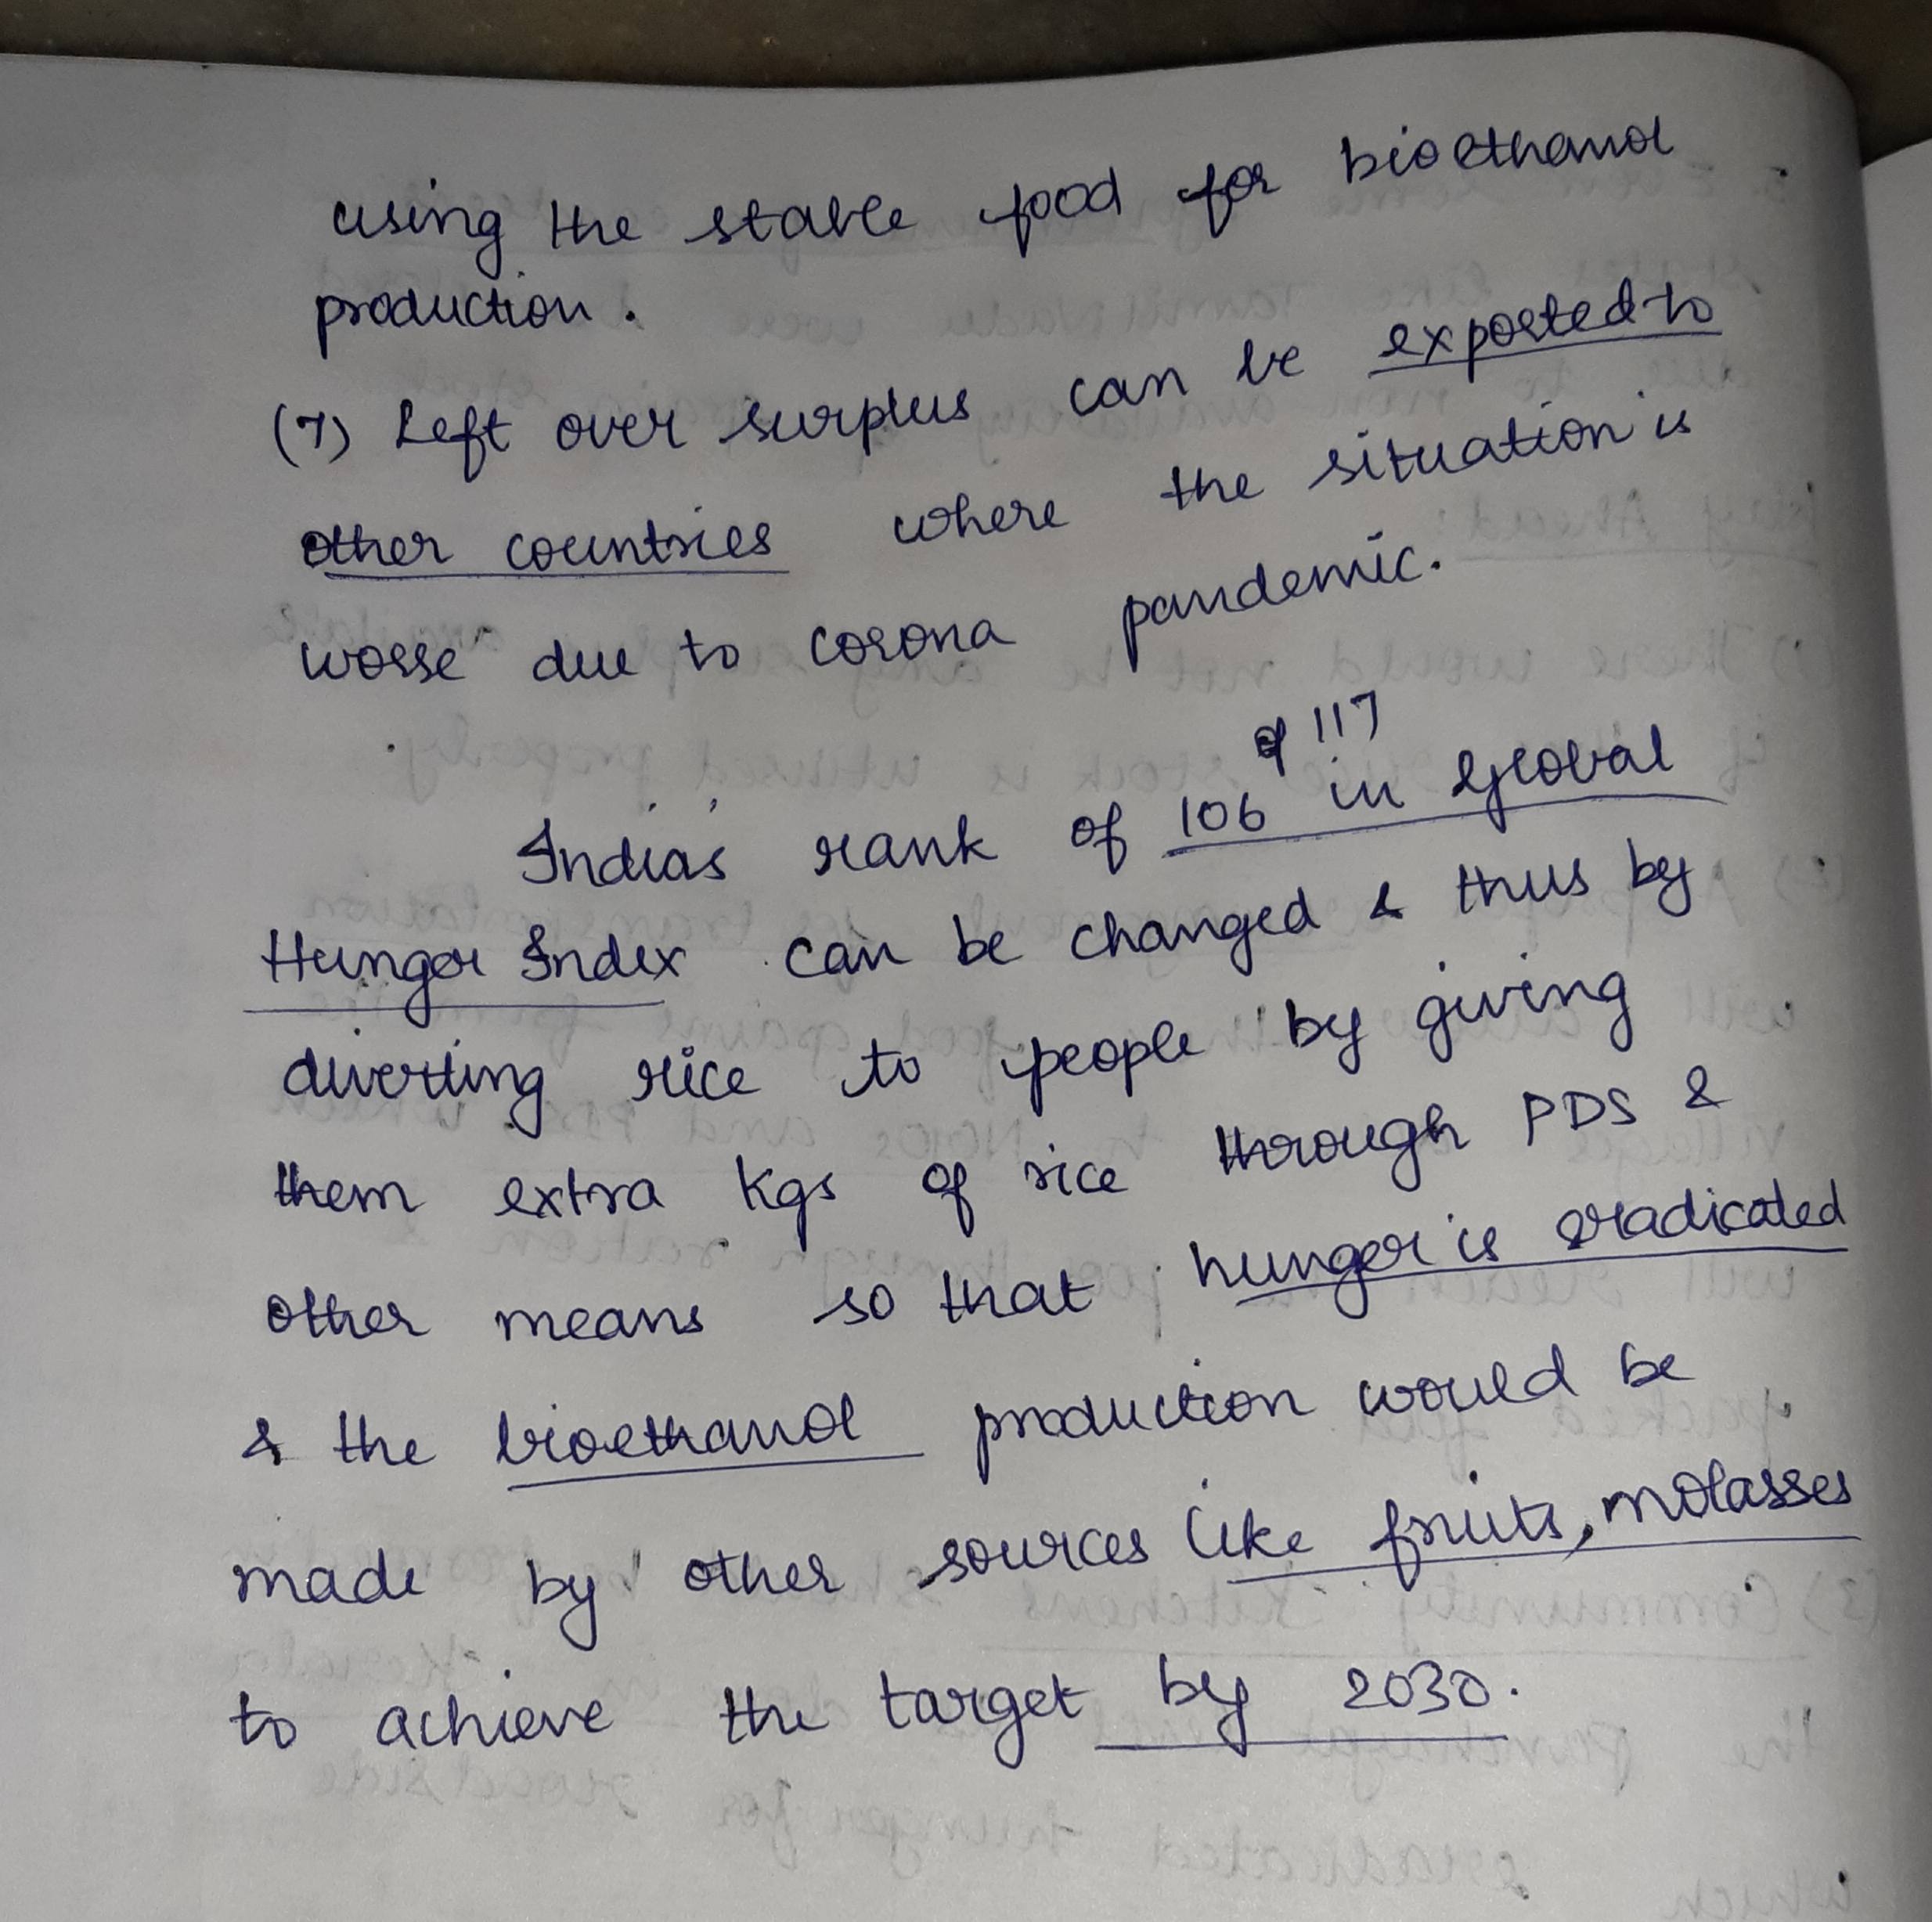 using the stable food for bioethanol
production.
(7) Left over surplus can be exported to
other countries where the situation is
worse due to corona pandemic.
of 117
India's rank of 106 in Global
Hunger Index can be changed & thus by
diverting rice to people by giving
them extra kgs of rice through PDS &
other means so that hunger is eradicated
& the bioethanol production would be
made by other sources like fruits, molasses
to achieve the target by 2030.